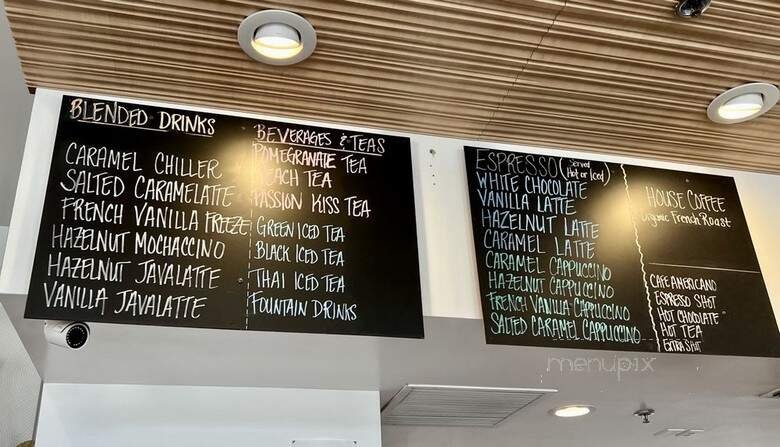 BLENDED DRINKS
CARAMEL CHILLER
SALTED CARAMELATTE
FRENCH VANILLA FREEZE
HAZELNUT MOCHACCINO
HAZELNUT JAVALATTE
VANILLA JAVALATTE
BEVERAGES & TEAS
POMEGRANATE TEA
PEACH TEA
PASSION KISS TEA
GREEN ICED TEA
BLACK ICED TEA
THAI ICED TEA
FOUNTAIN DRINKS
ESPRESSO (Served Hot or Iced)
WHITE CHOCOLATE
VANILLA LATTE
HAZELNUT LATTE
CARAMEL LATTE
CARAMEL CAPPUCCINO
HAZELNUT CAPPUCCINO
FRENCH VANILLA CAPPUCCINO
SALTED CARAMEL CAPPUCCINO
HOUSE COFFEE
Organic French Roast
CAFE AMERICANO
ESPRESSO SHOT
HOT CHOCOLATE
HOT TEA
EXTRA SHOT
menupix